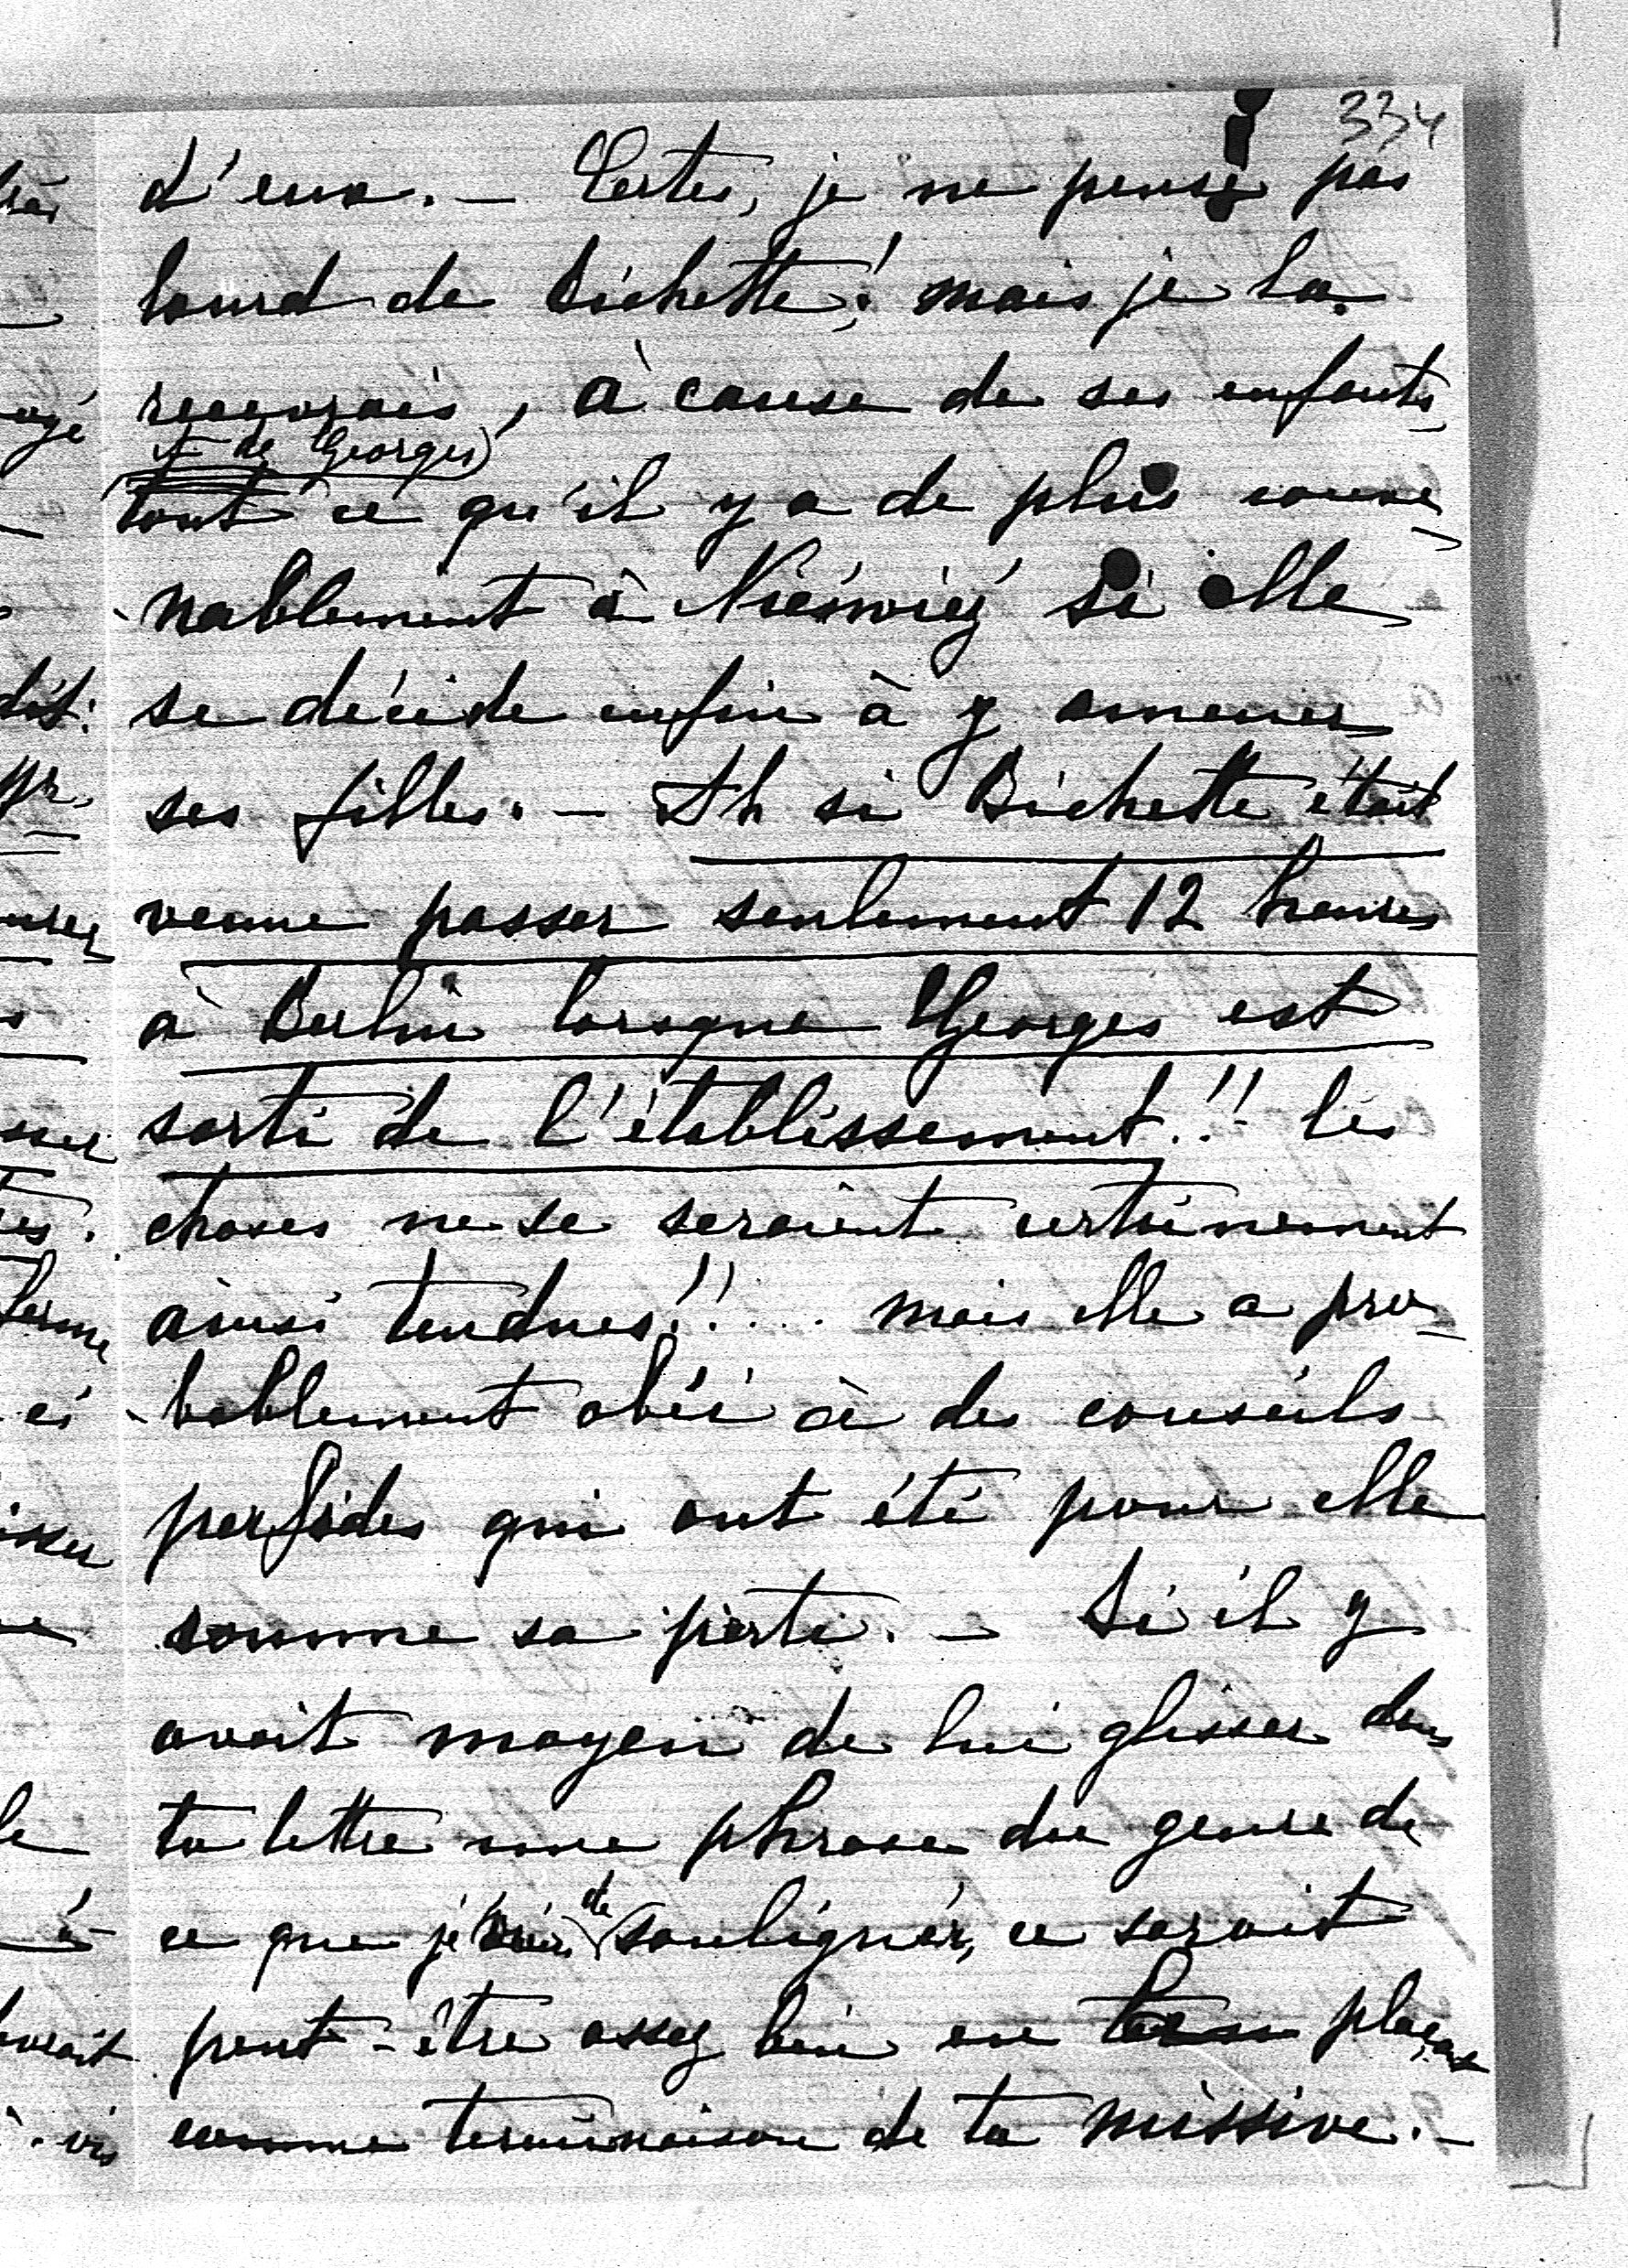 334
d'eux. — Certes, je ne pense pas
lourd de Bichette! mais je la
recevrais, à cause de ses enfants
et de Georges)
tout ce qu'il y a de plus conve-
-nablement à Nieśwież si elle
se décide enfin à y amener
ses filles. — Ah si Bichette était
venue passer seulement 12 heures
à Berlin lorsque Georges est
sorti de l'établissement!! les
choses ne se seraient certainement
ainsi tendues!!... mais elle a pro-
-bablement obéi à des conseils
perfides qui ont été pour elle
somme sa perte. — Si il y
avait moyen de lui glisser dans
ta lettre une phrase du genre de
ce que je viens de souligner, ce serait
peut-être assez bien en plaçant
comme terminaison de ta missive. —